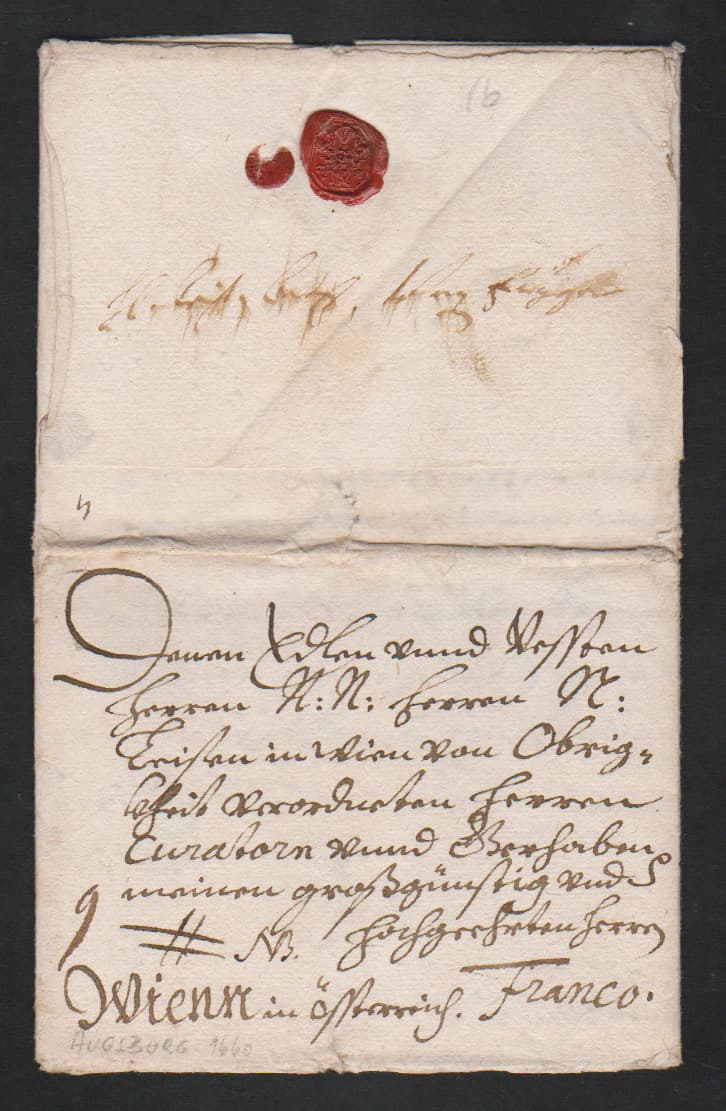 16
Denen Edlen vnnd Vessten
Herren N: N: Herren N:
in Wien von Obrig=
kheit verordneten Herren
Curatorn vnnd Gerhaben
meinen großgünstig vnd
9 NB. hochgeehrten Herren
Wienn in Össterreich. Franco.
AUGSBURG 1660